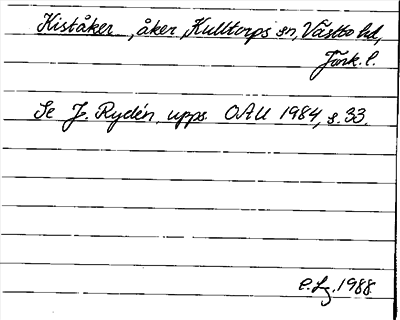 Kiståker, åker, Kulltorps sn, Västbo hd,
Jönk. l.
Se J. Rydén, upps. OAU 1984, s. 33.
1988